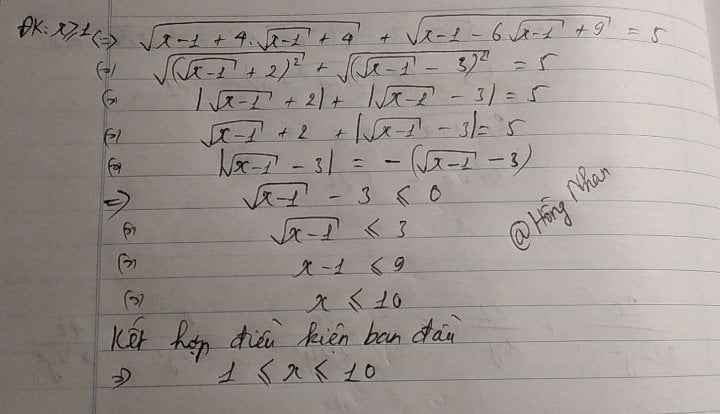 ĐK: x ≥ 1 (=) √(x-1+4.√(x-1)+4) + √(x-1-6√(x-1)+9) = 5
(=) √((√(x-1)+2)²) + √((√(x-1)-3)²) = 5
(=) |√(x-1)+2| + |√(x-1)-3| = 5
(=) √(x-1)+2 + |√(x-1)-3| = 5
(=) |√(x-1)-3| = -(√(x-1)-3)
=> √(x-1) - 3 ≤ 0
(=) √(x-1) ≤ 3
(=) x-1 ≤ 9
(=) x ≤ 10
Kết hợp điều kiện ban đầu
=> 1 ≤ x ≤ 10
@Hồng Nhan